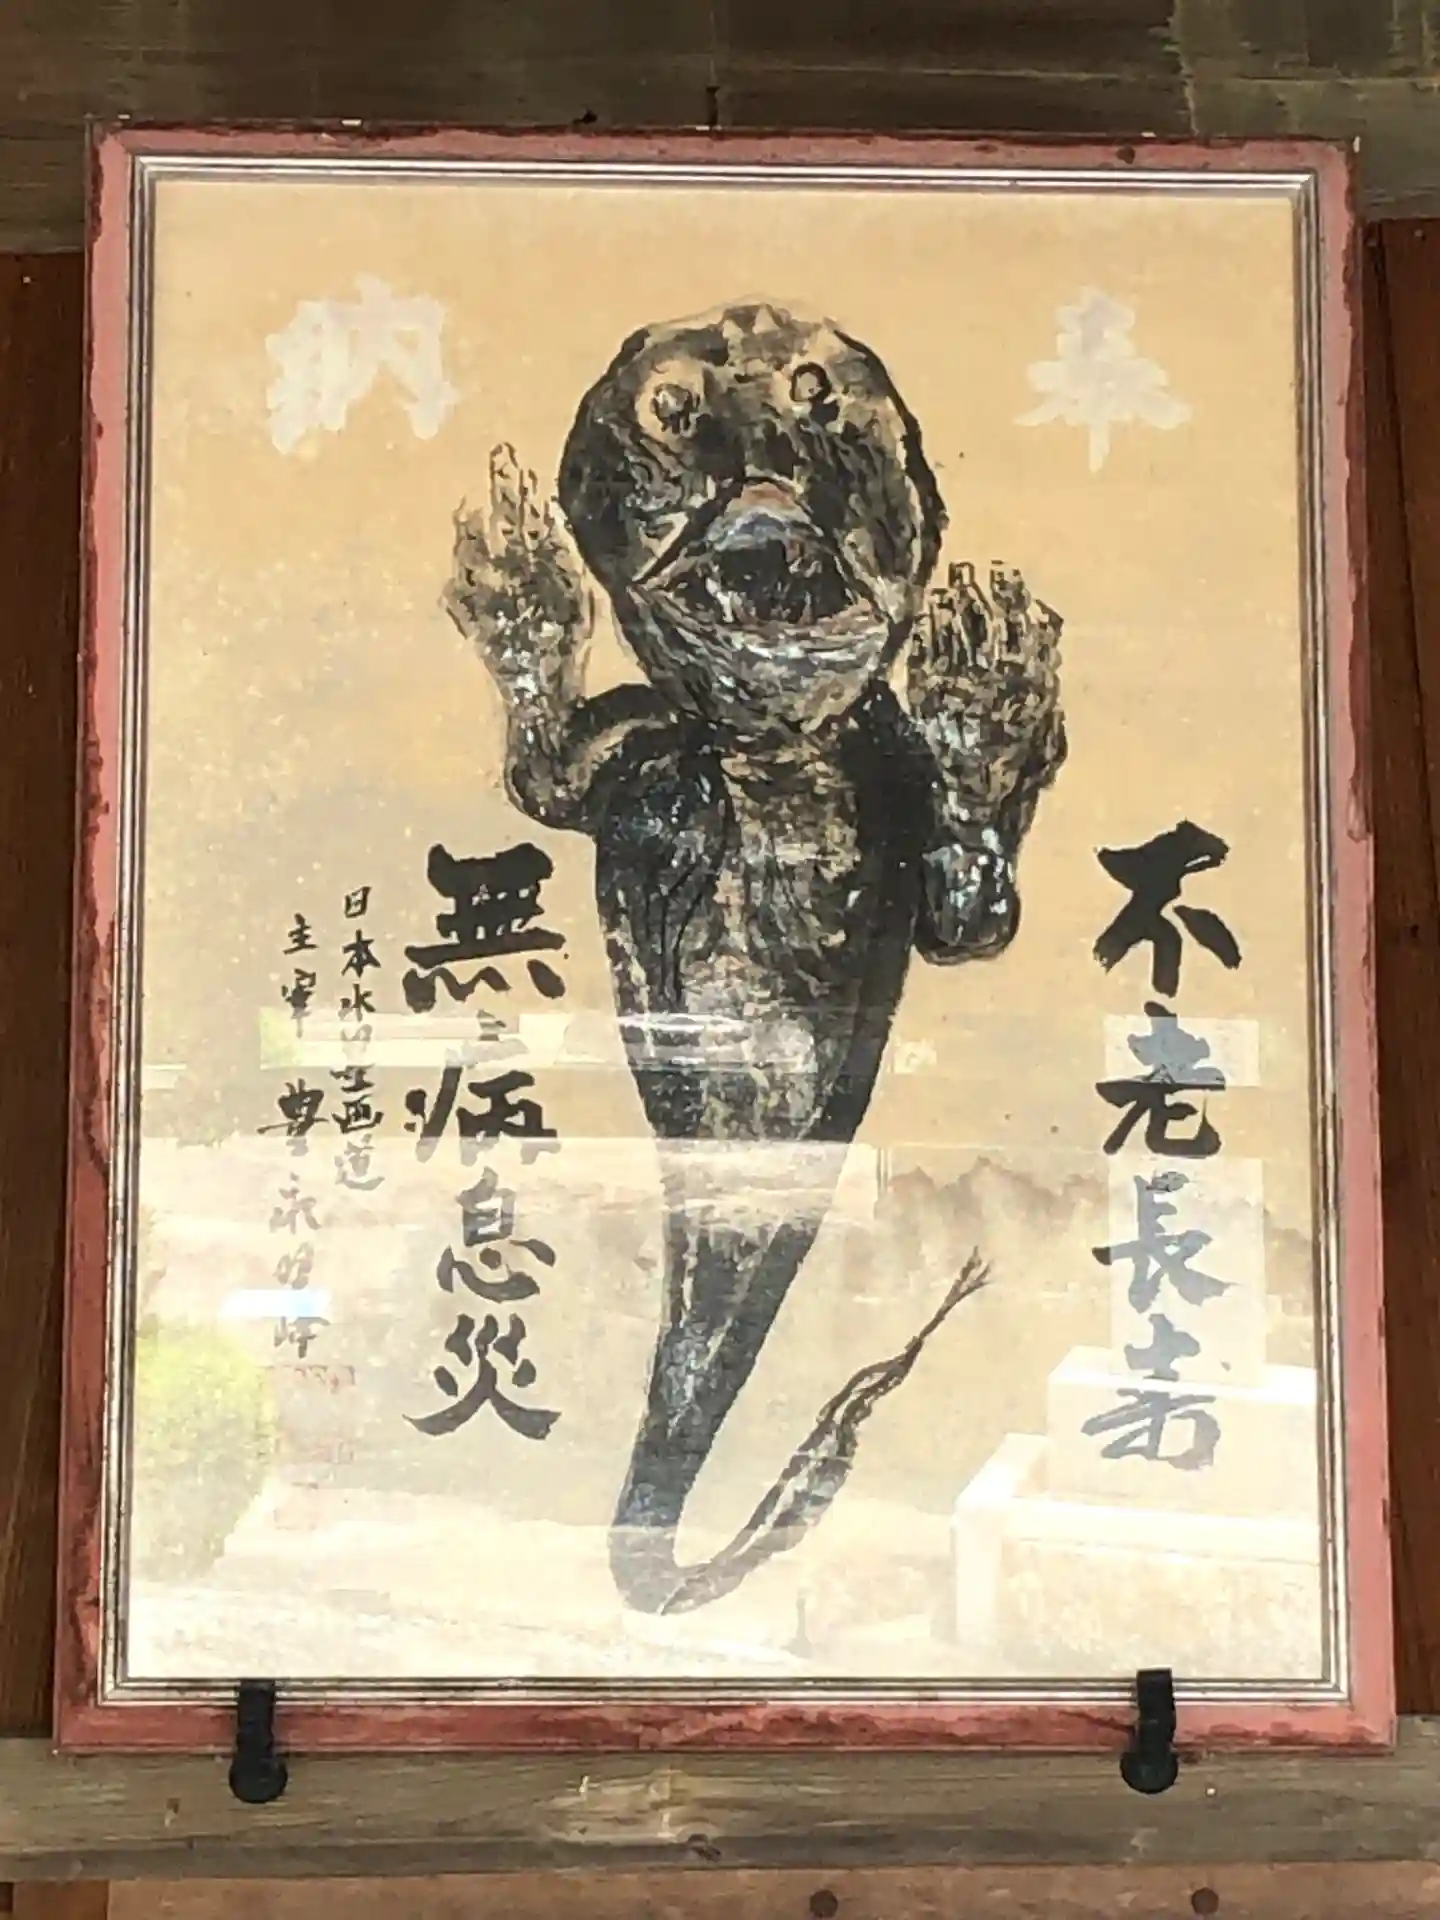 奉納
不老長寿
無病息災
日本水墨画道
主宰 豊永明